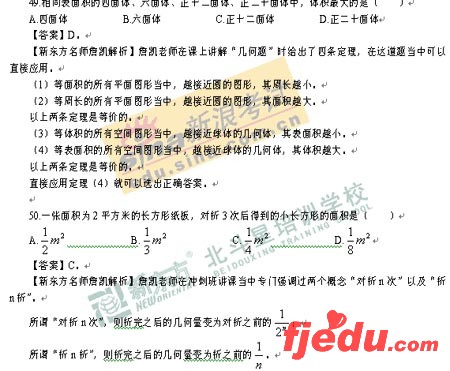 49.相同表面积的四面体、六面体、正十二面体、正二十面体中，体积最大的是（ ）
A.四面体 B.六面体 C.正十二面体 D.正二十面体
【答案】D。
【新东方名师詹凯解析】詹凯老师在课上讲解“几何题”时给出了四条定理，在这道题当中可以
直接应用。
（1）等面积的所有平面图形当中，越接近圆的图形，其周长越小。
（2）等周长的所有平面图形当中，越接近圆的图形，其面积越大。
以上两条定理是等价的。
（3）等体积的所有空间图形当中，越接近球体的几何体，其表面积越小。
（4）等表面积的所有空间图形当中，越接近球体的几何体，其体积越大。
以上两条定理是等价的。
直接应用定理（4）就可以选出正确答案。
50.一张面积为2平方米的长方形纸板，对折3次后得到的小长方形的面积是（ ）
A. 1/2 m² B. 1/3 m² C. 1/4 m² D. 1/8 m²
【答案】C。
【新东方名师詹凯解析】詹凯老师在冲刺班讲课当中专门强调过两个概念“对折n次”以及“折
n折”。
所谓“对折n次”，则折完之后的几何量变为对折之前的 1/2
所谓“折n折”，则折完之后的几何量变为折之前的 1/n 。
新浪考试
edu.sina.com
新东方
NEW ORIENTAL
北斗星培训学校
BEIDOUXING TRAINING SCHOOL
fjedu.com